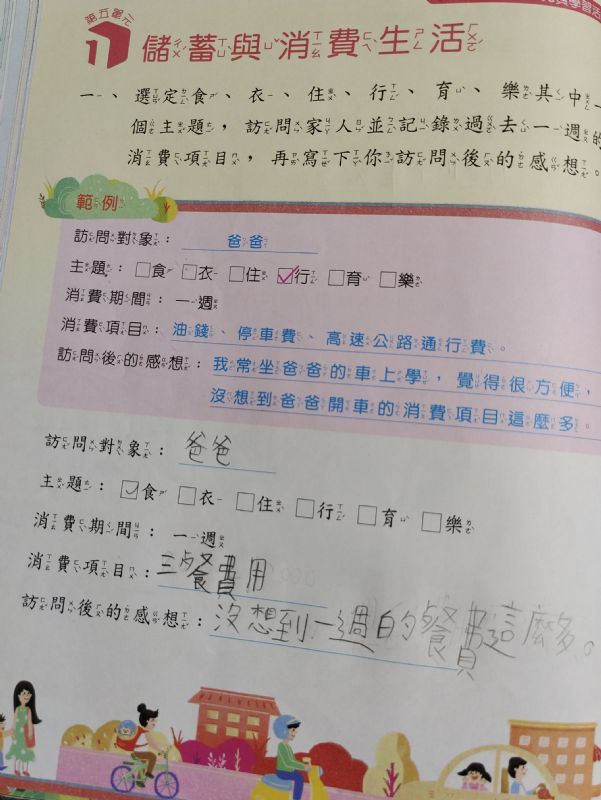 第五單元
1 儲蓄與消費生活
一、選定食、衣、住、行、育、樂其中一
個主題，訪問家人並記錄過去一週的
消費項目，再寫下你訪問後的感想。
範例
訪問對象：爸爸
主題：□食 □衣 □住 ☑行 □育 □樂
消費期間：一週
消費項目：油錢、停車費、高速公路通行費。
訪問後的感想：我常坐爸爸的車上學，覺得很方便，
沒想到爸爸開車的消費項目這麼多。
訪問對象：爸爸
主題：☑食 □衣 □住 □行 □育 □樂
消費期間：一週
消費項目：三餐費用
訪問後的感想：沒想到一週的餐費這麼多。